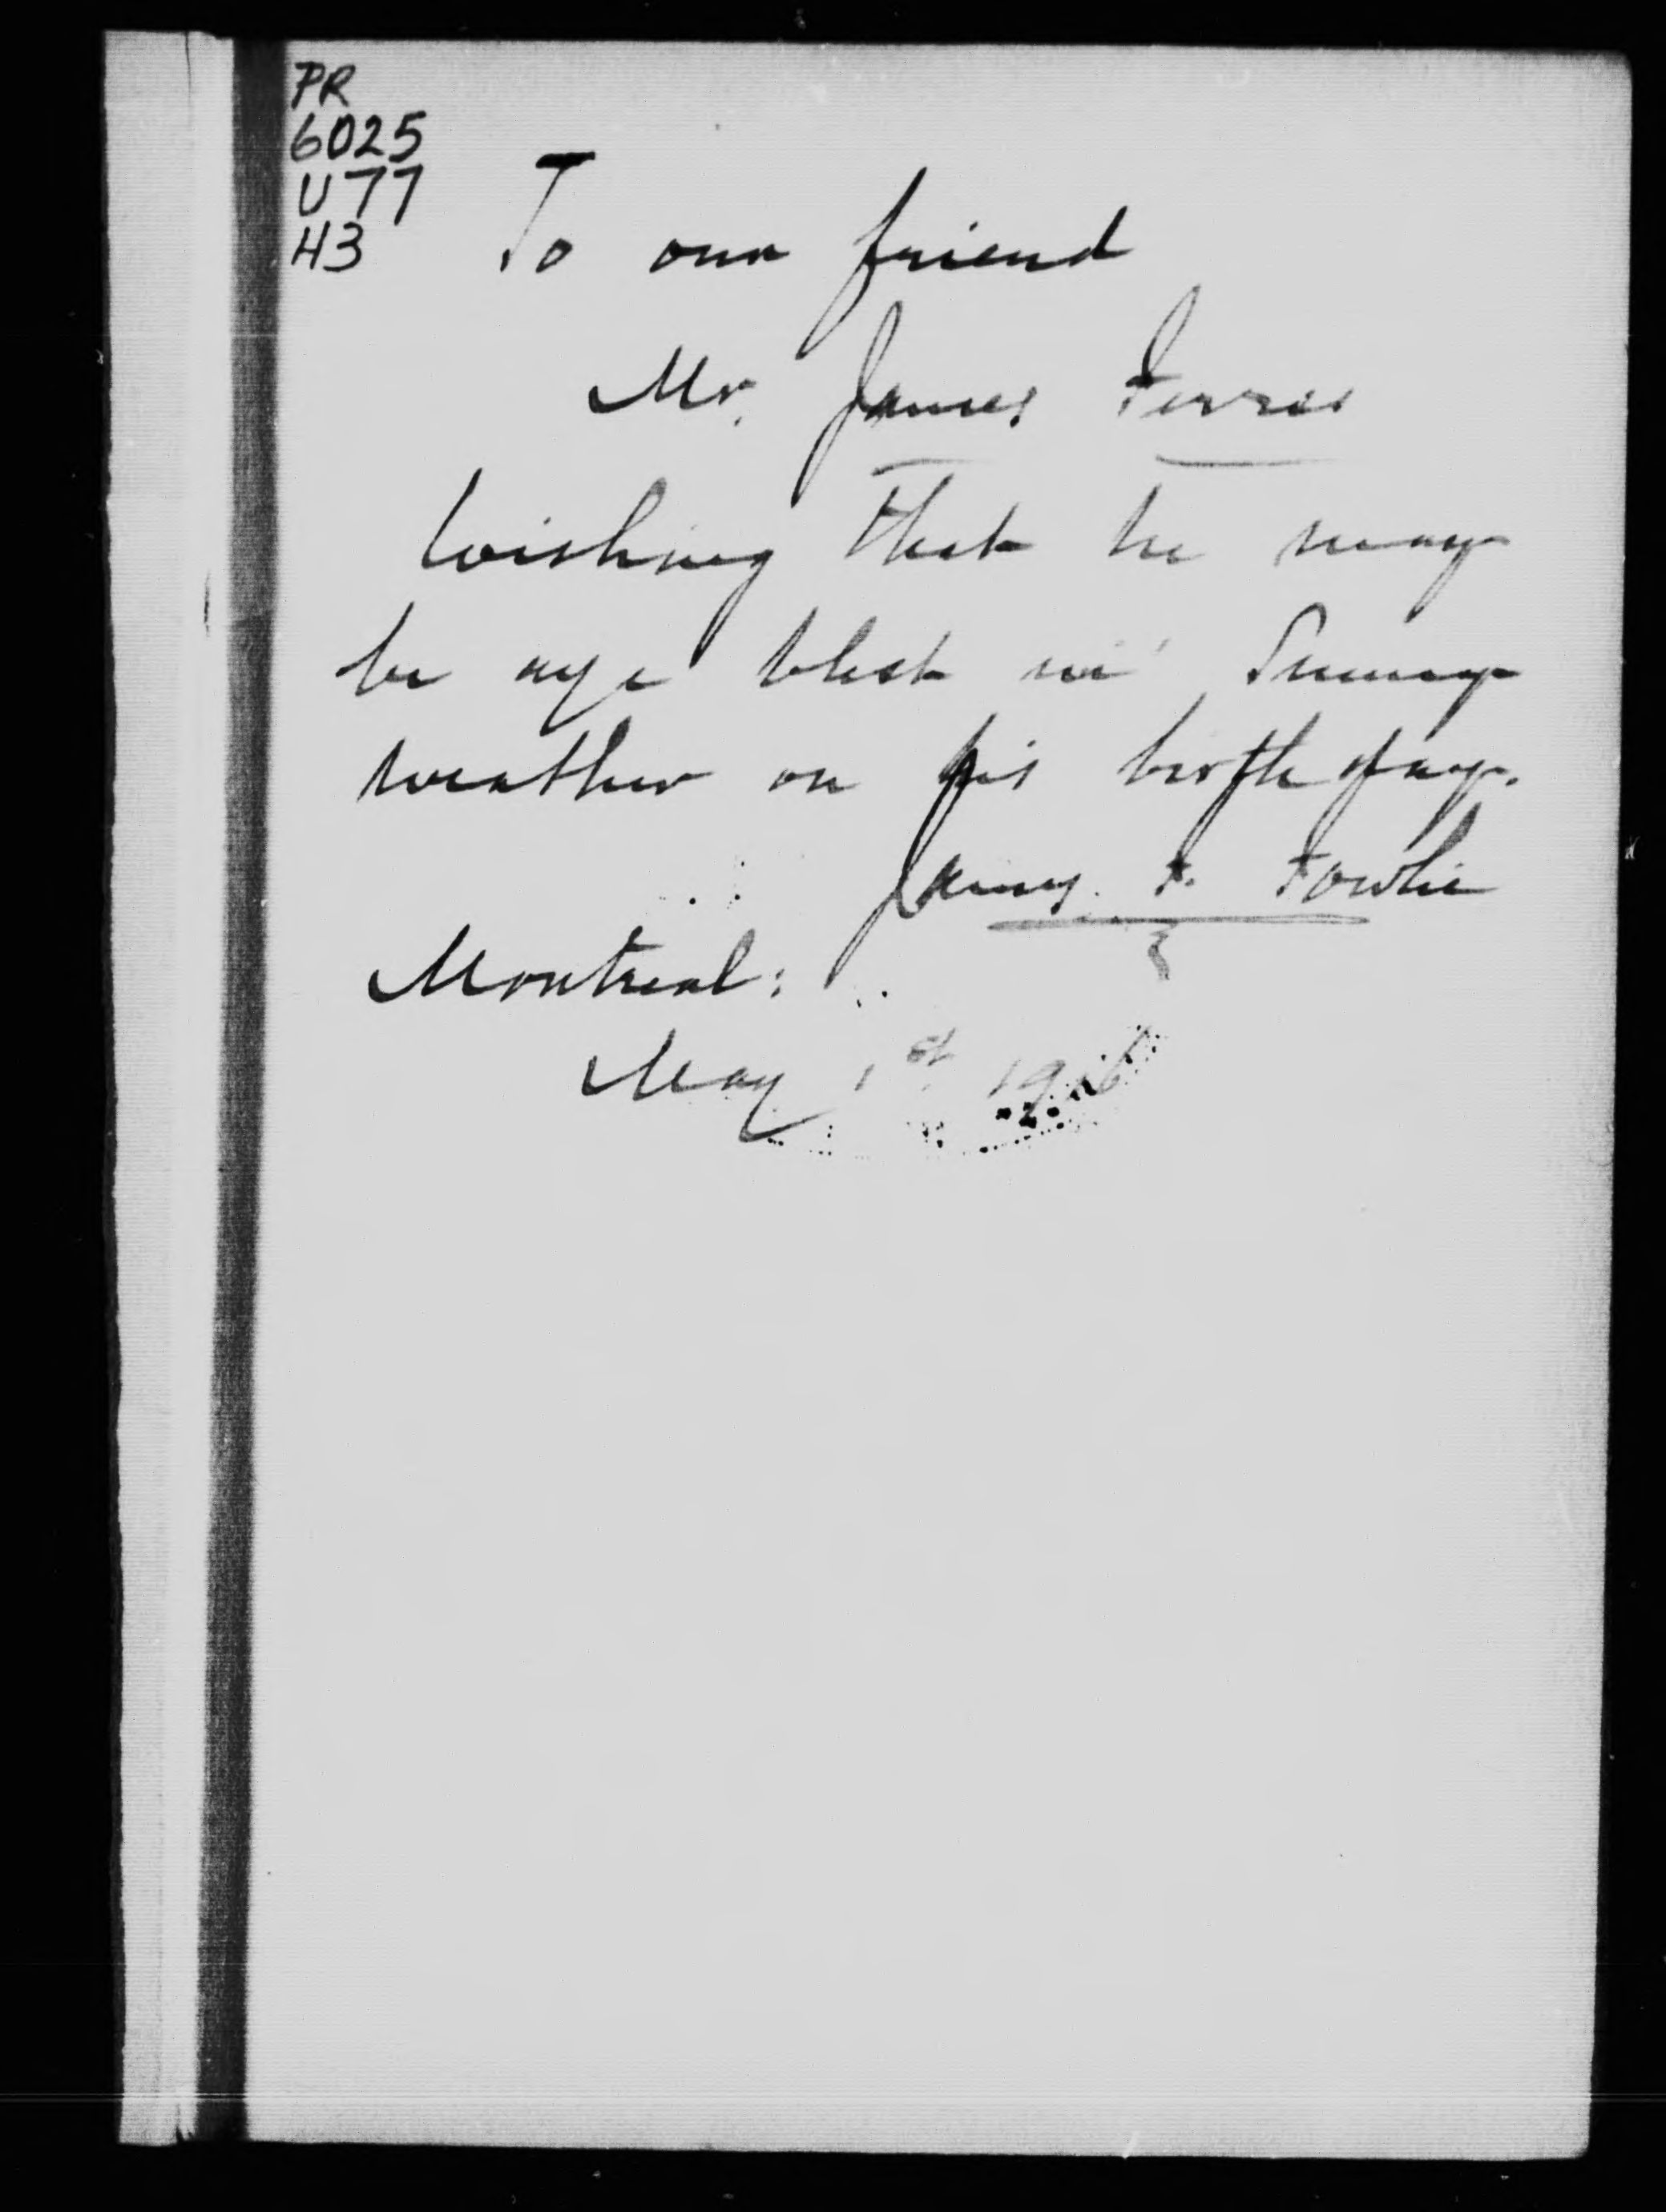 PR
6025
U77
H3
To our friend
Mr. James Ferres
Wishing that he may
be aye blest wi' Sunny
weather on his birthday.
James F. Fowlie
Montreal:
May 1st